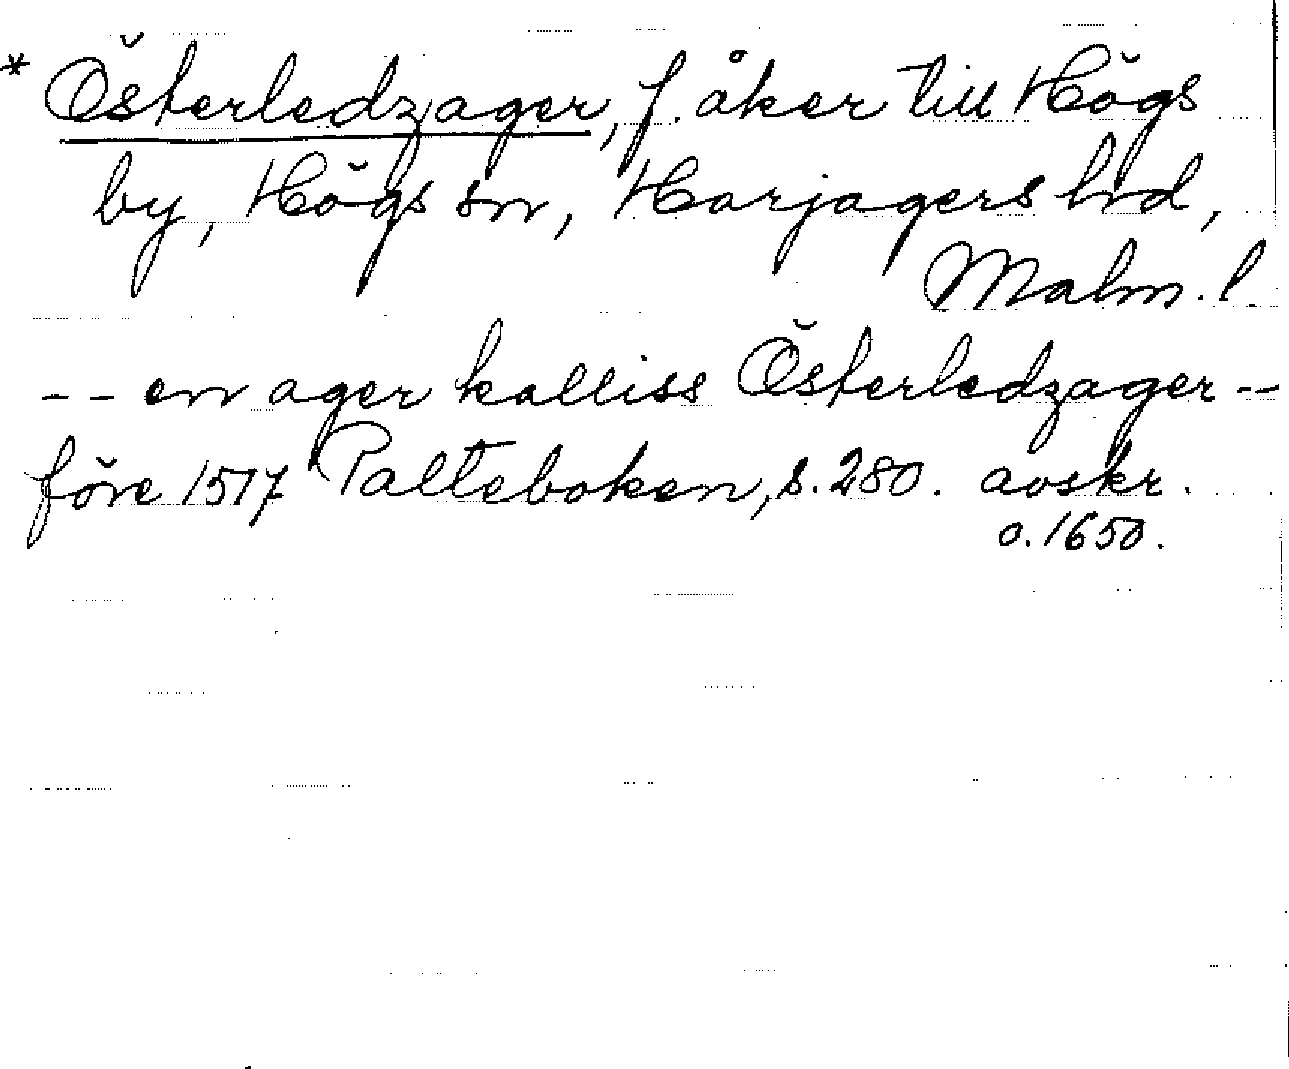 * Österledzager, f. åker till Högs
by, Högs sn, Harjagers hd,
Malm. l.
-- en ager kalliss Österledzager --
före 1517 Palteboken, s. 280. avskr.
o. 1650.